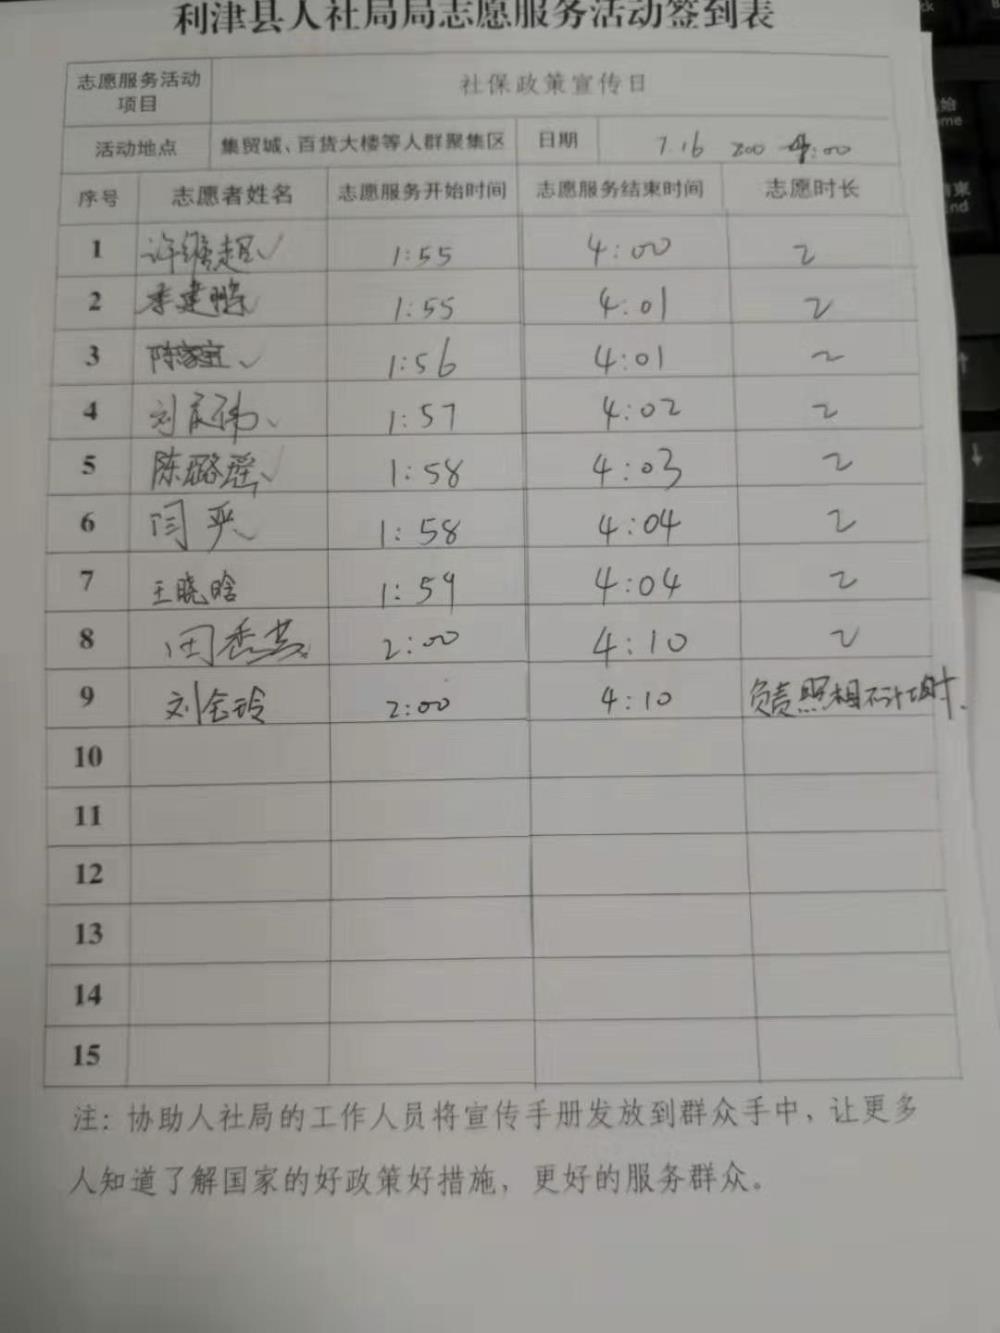 利津县人社局局志愿服务活动签到表
志愿服务活动项目 社保政策宣传日
活动地点 集贸城、百货大楼等人群聚集区 日期 7.16 200 4:00
序号 志愿者姓名 志愿服务开始时间 志愿服务结束时间 志愿时长
1 许维超 1:55 4:00 2
2 李建鹏 1:55 4:01 2
3 陈家宜 1:56 4:01 2
4 刘庆伟 1:57 4:02 2
5 陈璐瑶 1:58 4:03 2
6 闫 1:58 4:04 2
7 王晓晗 1:59 4:04 2
8 田香芸 2:00 4:10 2
9 刘金玲 2:00 4:10 负责照相不计时.
10
11
12
13
14
15
注：协助人社局的工作人员将宣传手册发放到群众手中，让更多
人知道了解国家的好政策好措施，更好的服务群众。